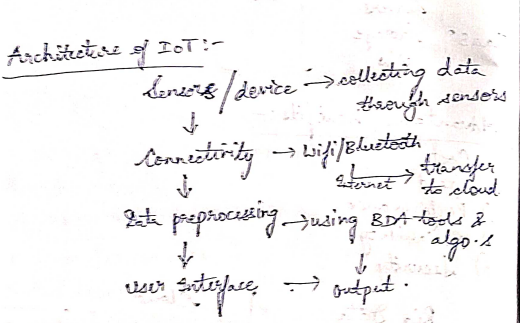 Architecture of IoT:-
Sensors/device → collecting data
through sensors
↓
Connectivity → Wifi/Bluetooth
Internet → transfer
to cloud
↓
Data preprocessing → using BDA tools &
algo.s
↓ ↓
User Interface → output.